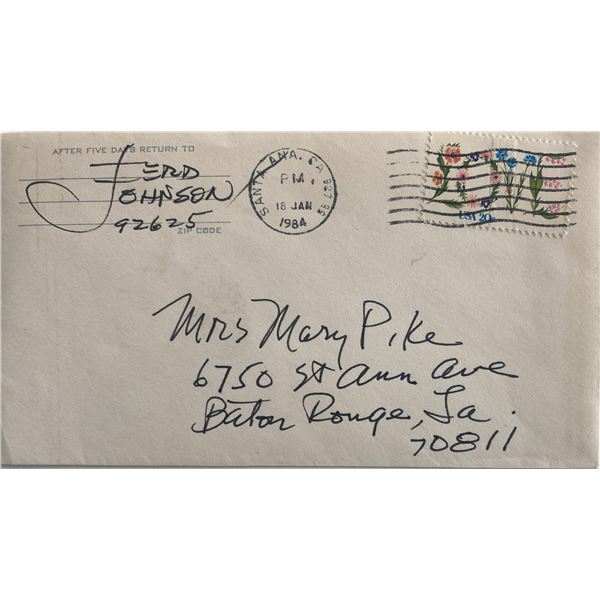 AFTER FIVE DAYS RETURN TO
FERD
JOHNSON
92625
ZIP CODE
SANTA ANA, CA 927
PM
18 JAN
1984
USA 20c
Mrs Mary Pike
6750 St Ann Ave
Baton Rouge, La.
70811